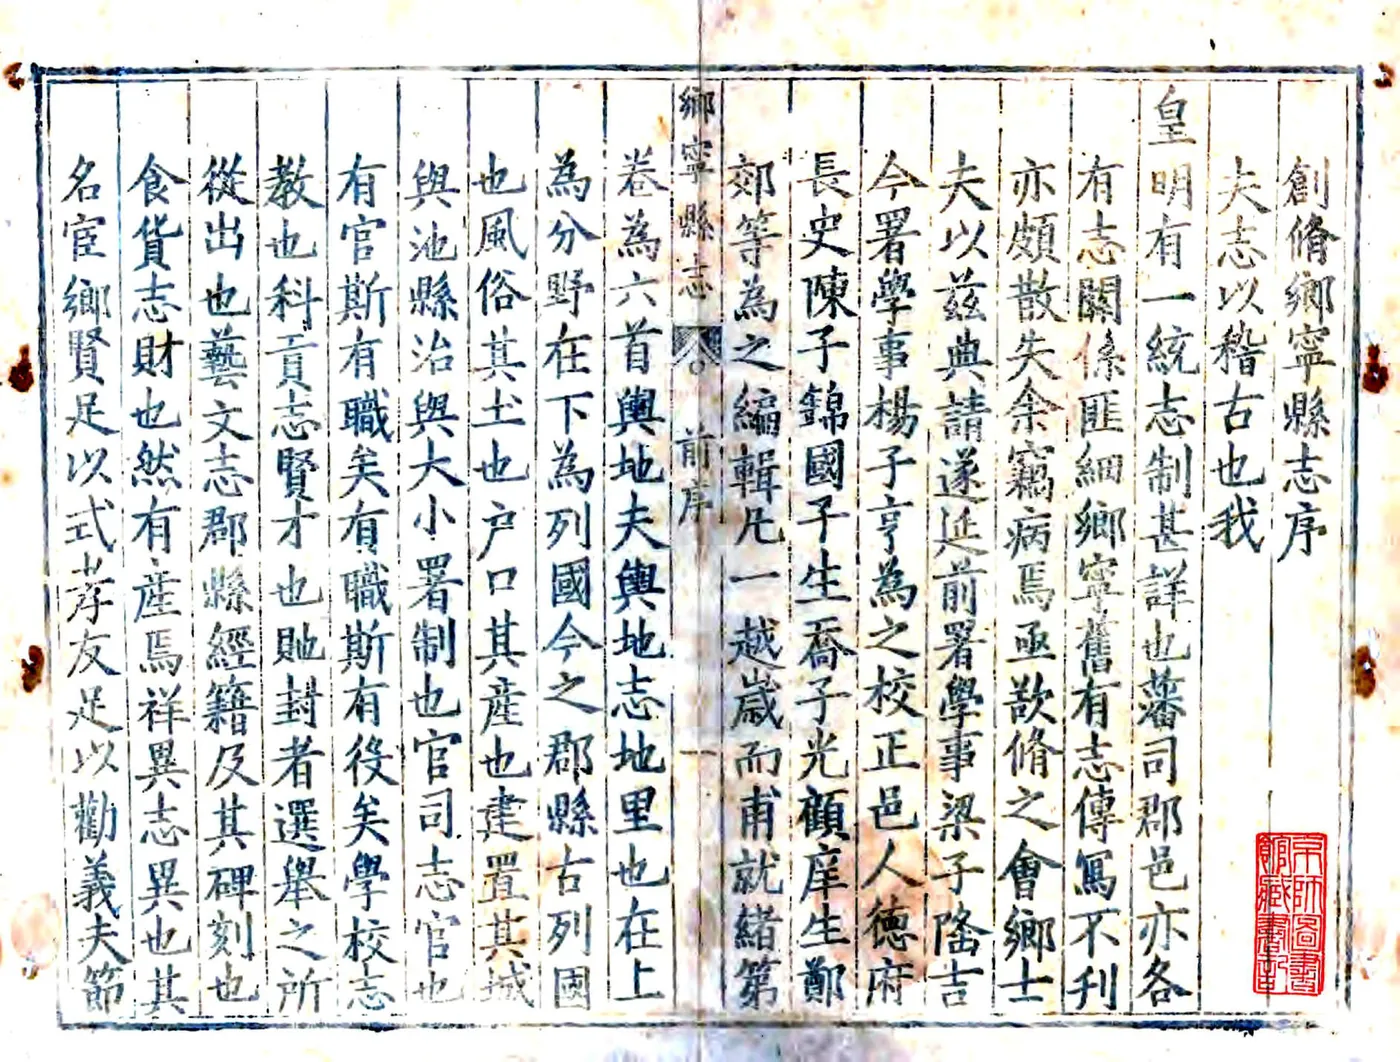 創脩鄉寧縣志序
夫志以稽古也我
皇明有一統志制甚詳也藩司郡邑亦各
有志關係匪細鄉寧舊有志傳寫不利
亦頗散失余竊病焉亟欲脩之會鄉士
夫以兹典請遂延前署學事梁子隆吉
今署學事楊子亨為之校正邑人德府
長史陳子錦國子生喬子光顧庠生鄭
郊等為之編輯凡一越歲而甫就緒第
鄉寧縣志 前序 一
卷為六首輿地夫輿地志地里也在上
為分野在下為列國今之郡縣古列國
也風俗其土也户口其産也建置其城
與池縣治與大小署制也官司志官也
有官斯有職矣有職斯有役矣學校志
教也科貢志賢才也貤封者選舉之所
從出也藝文志郡縣經籍及其碑刻也
食貨志財也然有産焉祥異志異也其
名宦鄉賢足以式孝友足以勸義夫節
京師圖書
館藏書記